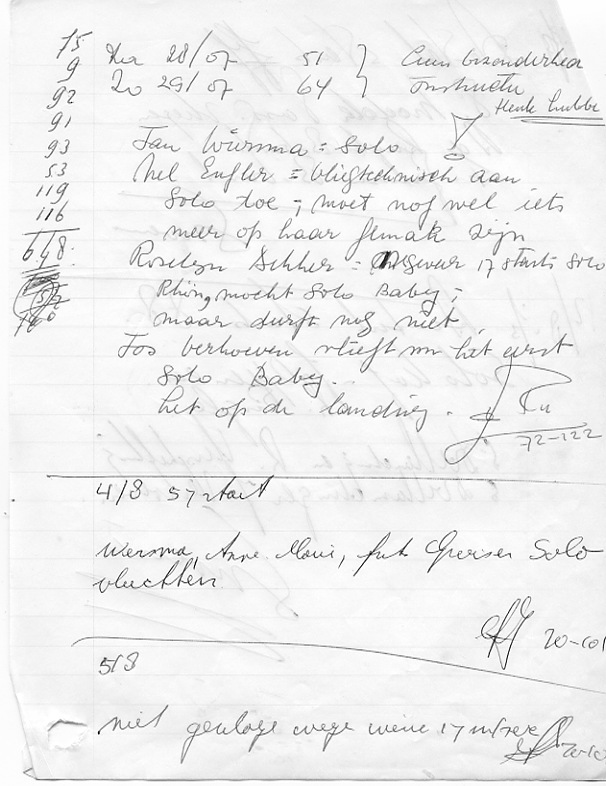 75
9
92
91
93
53
119
116
648
Za 28/07 51
Zo 29/07 64
Geen bizonderhed
instructie
Henk Lubbe
Jan Wiersma = solo !
Nel Engler = vliegtechnisch aan
solo toe; moet nog wel iets
meer op haar gemak zijn
Roselyn Dekker = ongeveer 17 starts solo
Rhön, mocht solo Baby;
maar durft nog niet
Jos Verhoeven vliegt nu het eerst
solo Baby.
Let op de landing.
72-122
4/8 57 start
Wiersma, Anne Marie, solo
vluchten.
20-101
5/8
niet gevlogen wege 17 m/sec